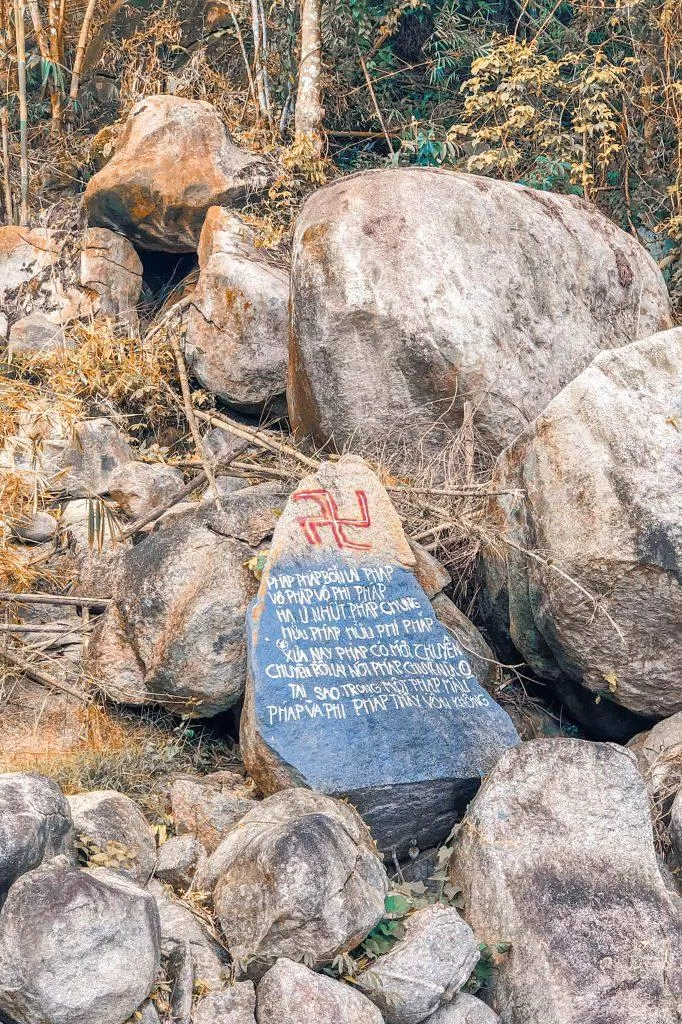 PHÁP PHÁP BỔN LAI PHÁP
VÔ PHÁP VÔ PHI PHÁP
HÀ Ư NHỨT PHÁP CHUNG
HỮU PHÁP HỮU PHI PHÁP
XƯA NAY PHÁP CÓ MỚI CHUYỀN
CHUYỀN RỒI LẠI NÓI PHÁP
TẠI SAO TRONG MỘT PHÁP MẦU
PHÁP VÀ PHI PHÁP THẢY VỐN KHÔNG